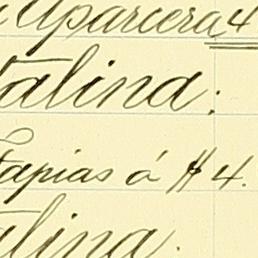 Aparcera 4
talina:
Tapias á $4.
alina.